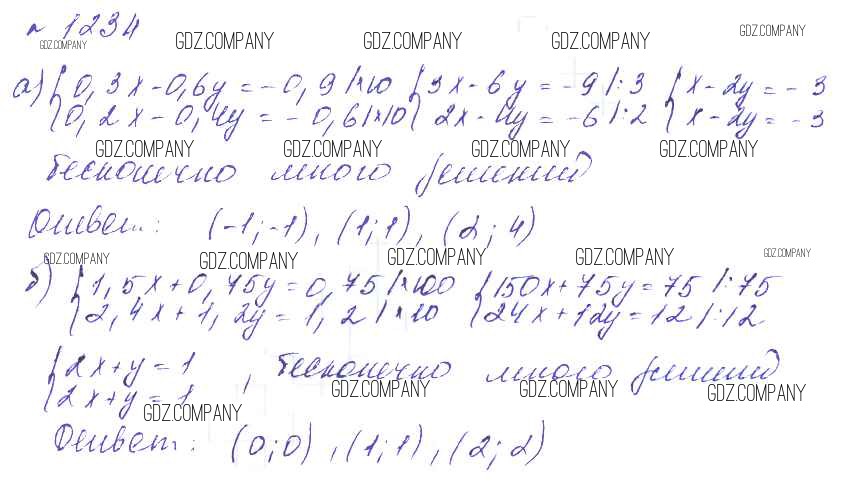 № 1234
GDZ.COMPANY GDZ.COMPANY GDZ.COMPANY GDZ.COMPANY GDZ.COMPANY
а) { 0,3x - 0,6y = -0,9 |×10 { 3x - 6y = -9 |:3 { x - 2y = -3
{ 0,2x - 0,4y = -0,6 |×10 { 2x - 4y = -6 |:2 { x - 2y = -3
GDZ.COMPANY GDZ.COMPANY GDZ.COMPANY GDZ.COMPANY
бесконечно много решений
Ответ: (-1;-1), (1;1), (2;4)
GDZ.COMPANY GDZ.COMPANY GDZ.COMPANY GDZ.COMPANY GDZ.COMPANY
б) { 1,5x + 0,75y = 0,75 |×100 { 150x + 75y = 75 |:75
{ 2,4x + 1,2y = 1,2 |×10 { 24x + 12y = 12 |:12
{ 2x + y = 1
{ 2x + y = 1 , бесконечно много решений
GDZ.COMPANY GDZ.COMPANY GDZ.COMPANY GDZ.COMPANY
Ответ: (0;0), (1;1), (2;2)